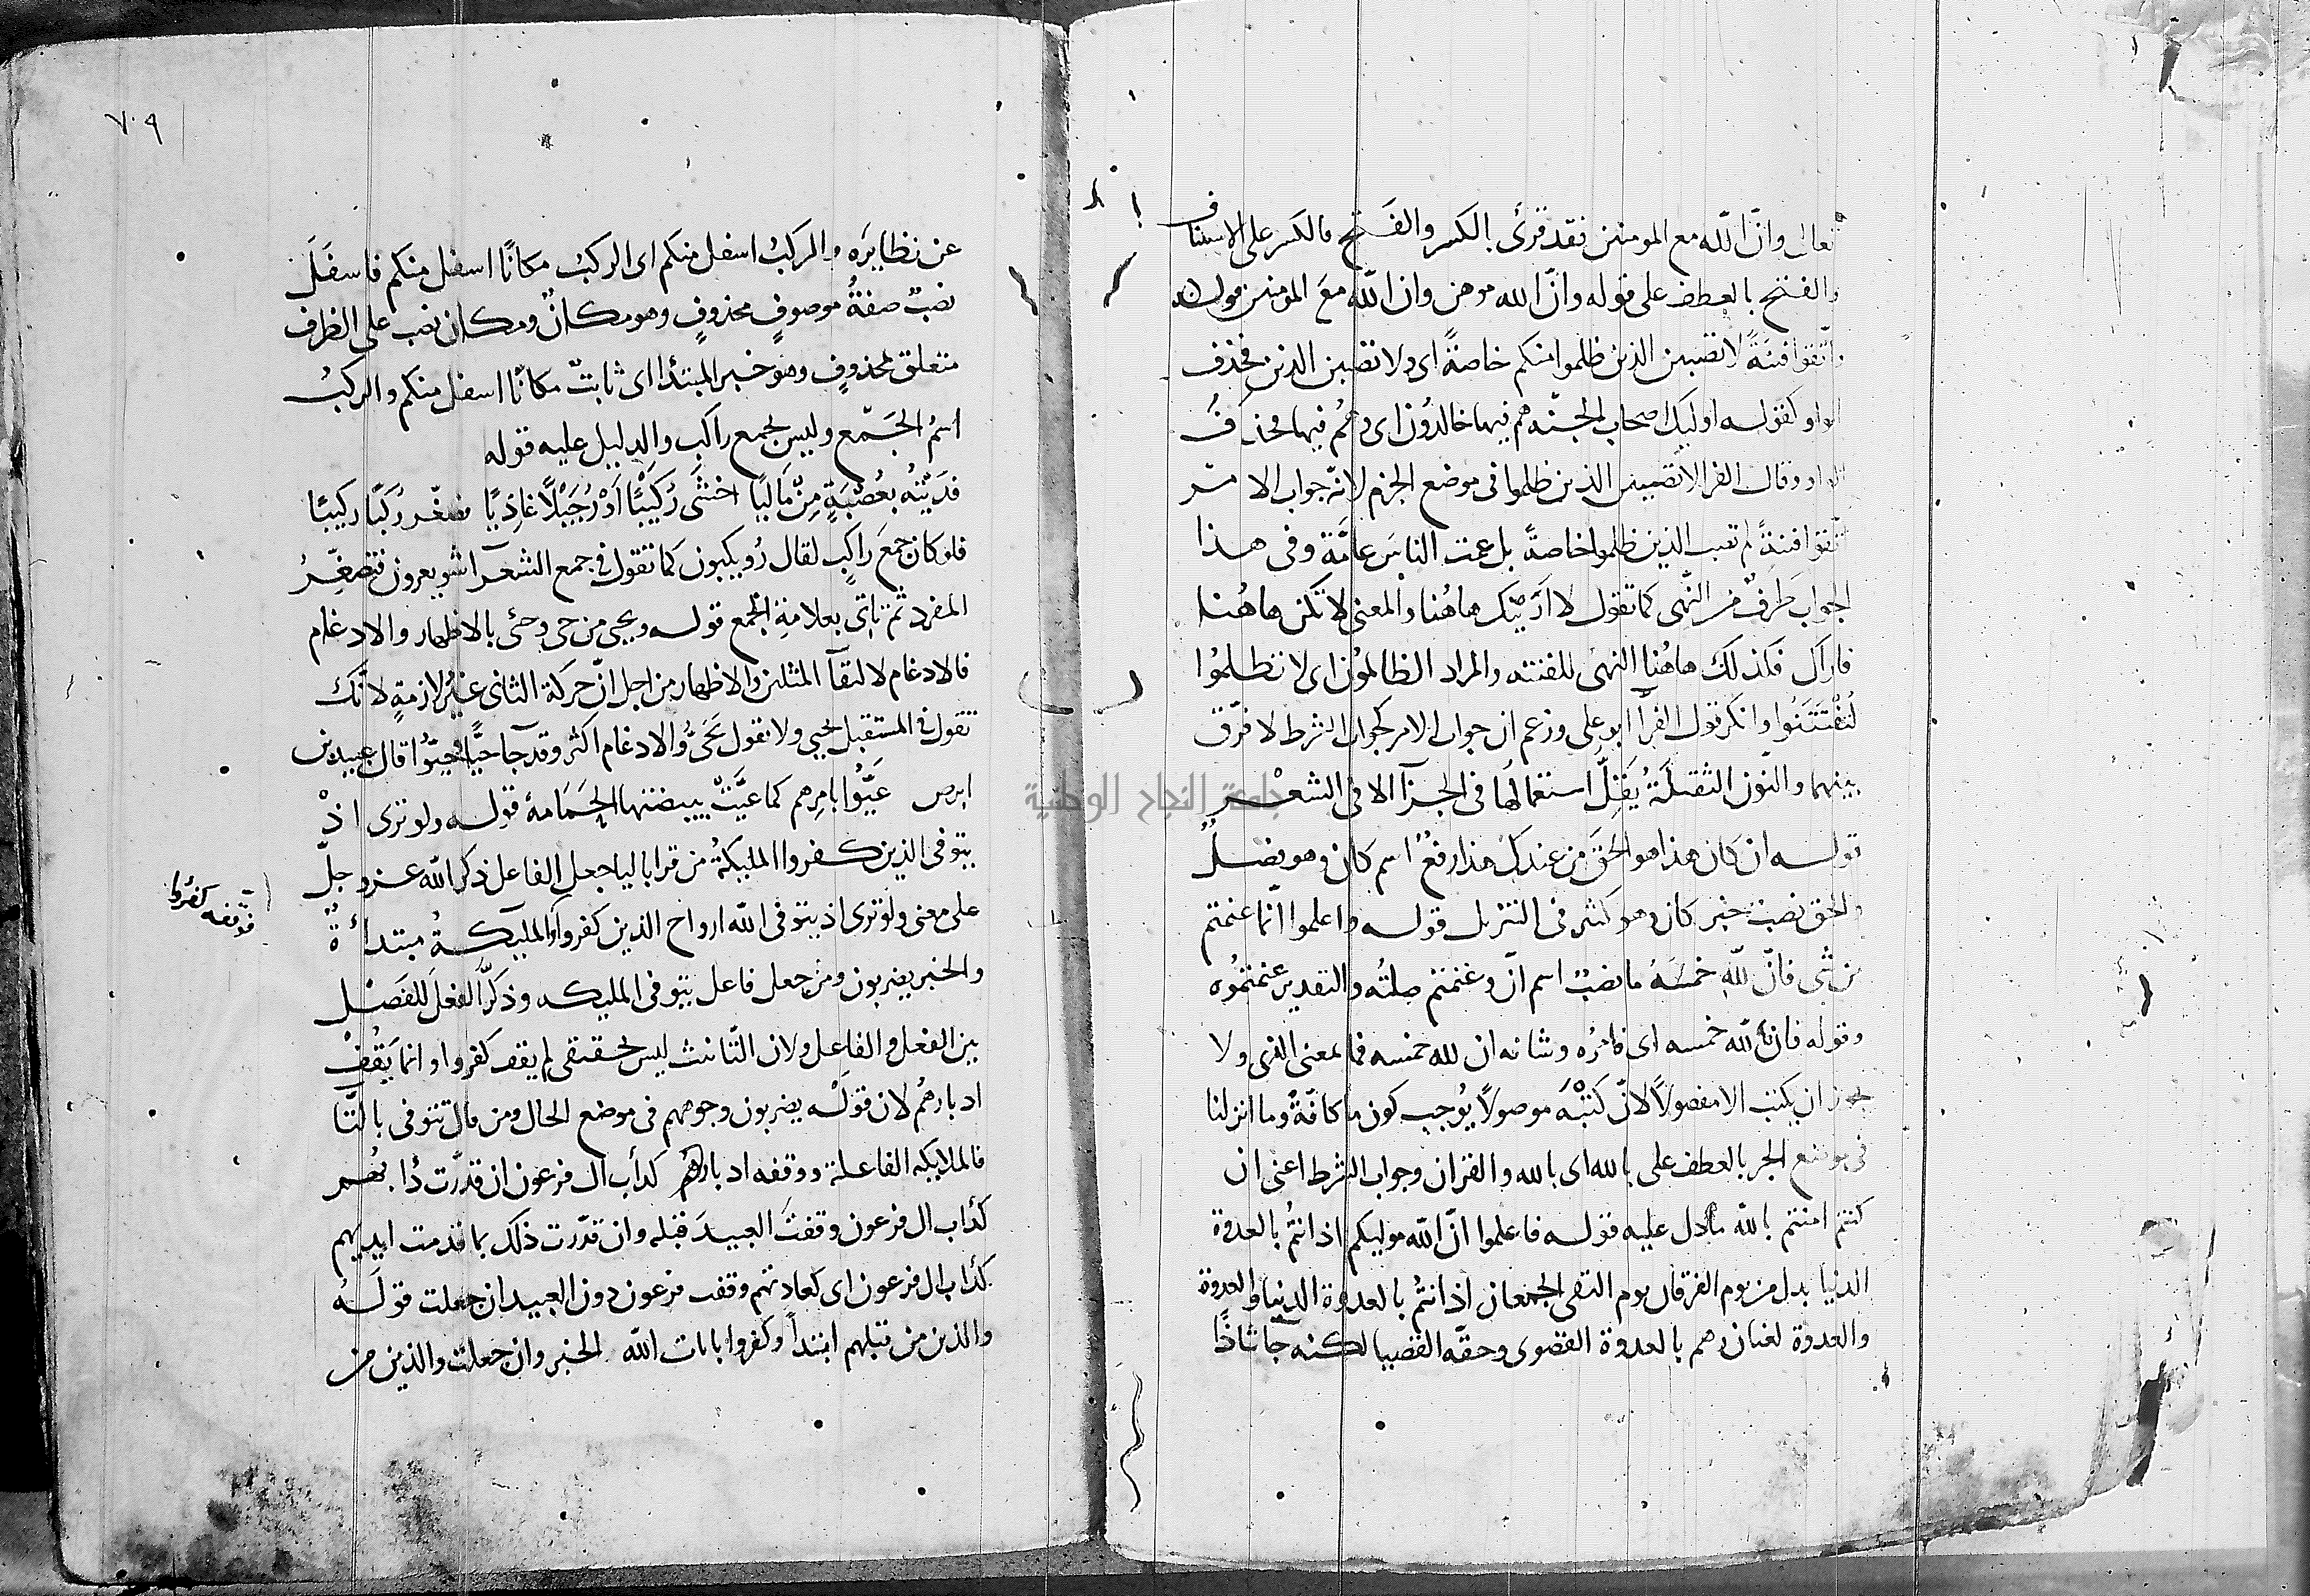 تعالى وانّ الله مع المومنين فقد قرئ بالكسر والفتح فالكسر على الاستيناف
والفتح بالعطف على قوله وانّ الله موهن وان الله معَ المومنين
واتّقوا فتنَةً لا تصيبن الذين ظلموا منكم خاصةً اى ولا تصيبن الذين فحذف
الواو كقوله اوليك اصحاب الجنّه هم فيها خالدُون اى وهُم فيها فحذفُ
الواو وقال الفرا لا تصيبن الذين ظلموا فى موضع الجزم لانّه جواب الامر
اتّقوا فتنةً لم تصب الذين ظلموا خاصةً بل عمت الناسَ عامَّة وفى هذا
الجواب طرفٌ من النّهى كما تقول لا ارَيتّك هاهُنا والمعنى لا تكن هاهُنا
فاراك فكذلك هاهُنا النهى للفتنه والمراد الظالمُون اى لا تظلمُوا
لتُفْتَتَنُوا وانكر قول الفرآ ابو على وزعم ان جواب الامر كجواب الشرط لا فرق
بينهما والنون الثقيلَةُ يَقِلّ استعمالُها فى الجزآ الا فى الشعْر
قوله ان كان هذا هو الحَق من عندك هذا رفعٌ اسم كان وهو فصلٌ
والحق نصبٌ خبر كان وهو كثير فى التنزيل قوله واعلموا انّما غنمتم
من شى فانّ للهِ خمسَهُ ما نصبٌ اسم انّ وغنمتم صلتُه والتقدير غنمتُموُه
وقوله فان لله خمسه اى فامرُه وشانه ان لله خمسه فما بمعنى الذى ولا
يجوز ان يكتب الا مفصولاً لانّ كَتْبَهُ موصولاً يُوجب كون ما كافّةً وما انزلنا
فى موضع الجر بالعطف على بالله اى بالله والقران وجواب الشرط اعنى ان
كنتم امنتم بالله ما دل عليه قوله فاعلموا انّ الله موليكم اذ انتُم بالعدوة
الدنيا بدل من يوم الفرقان يوم التقى الجمعان اذ انتُم بالعدوة الدنيا والعدوة
والعدوة لغتان وهم بالعدوة القصوى وحقّه القصيا لكنه جآ شاذًا
٧٠٩
عن نظايِرَه والركبُ اسفل منكم اى الركبُ مكانًا اسفل منكم فاسفلَ
نصبٌ صفةُ موصوفٍ محذوفٍ وهو مكانٌ ومكان نصب على الظرف
متعلق بمحذوفٍ وهو خبر المبتدأ اى ثابتٌ مكانًا اسفل منكم والركبُ
اسمُ الجَمْع وليس بجمع راكب والدليل عليه قوله
بنَيْتُه بعُصْبَةٍ مِنّ مَاليًا اخشَى رُكَيْبًا اَوْ رُجَيْلاً غاذِيًا فصغّر رُكَبًا ركيبًا
فلو كان جمعَ راكبٍ لقال رُويكبون كما تقول فى جمع الشعرآ شويعرون فتصغّرُ
المفرد ثم تاتى بعلامةِ الجمع قوله ويحيى من حى وحَيى بالاظهار والادغام
فالادغام لالتقآ المثلين والاظهار من اجل انّ حركة الثانى غيرُ لازمةٍ لانّك
تقول فى المستقبل يحيى ولا تقول يَحىُّ والادغام اكثر وقد جآ حيًّا حُيّوُا قال عبيد بن
ابرص عَيُّوا بامِرهم كما عيَّتْ ببيضتها الحَمَامة قوله ولو ترى اذْ
يتوفى الذين كفروا المليكةُ من قرا باليا جعل الفاعل ذكر الله عز وجلّ
على معنى ولو ترى اذ يتوفى الله ارواح الذين كفروا والمليكةُ مبتدأةٌ
والخبر يضربون ومن جعل فاعل يتوفى المليكه وذكّر الفعلَ للفَصْل
بين الفعل والفاعل ولان التّانيث ليس بحقيقى لم يقف كفروا وانما يَقُفْ
ادبارهُم لان قولَه يضربون وجوههم فى موضع الحال ومن قال تتوفى بالتّا
فالملايكه الفاعلة ووقفه ادبارهم كدأب ال فرعون ان قدّرت دُابهُم
كدُاب ال فرعون وقفتَ العبيدَ قبله وان قدّرت ذلك بما قدمت ايديهم
كدُاب ال فرعون اى كعادتهم وقف فرعون دون العبيد ان جعلت قولَهُ
والذين من قبلهم ابتدأ وكفروا بايات الله الخبر وان جعلت والذين من
فوقفه كفروا
جامعة النجاح الوطنية